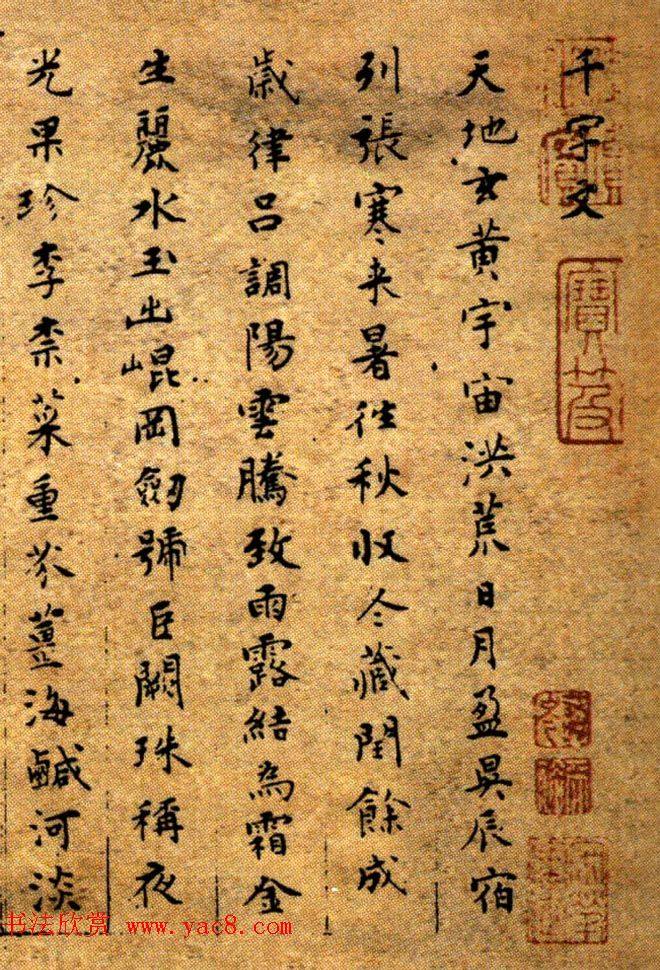 千字文
天地玄黄宇宙洪荒日月盈昃辰宿
列張寒来暑往秋收冬藏閏餘成
歲律吕調陽雲騰致雨露結為霜金
生麗水玉出崐岡劔號巨闕珠稱夜
光果珍李柰菜重芥薑海鹹河淡
书法欣赏 www.yac8.com